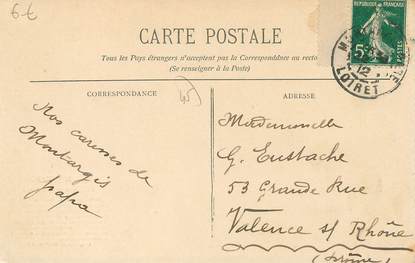 6-€
CARTE POSTALE
Tous les Pays étrangers n'acceptent pas la Correspondance au recto
(Se renseigner à la Poste)
CORRESPONDANCE
45
ADRESSE
Nos caresses de
Montargis
papa
Mademoiselle
G. Eustache
53 Grande Rue
Valence s/ Rhône
(Drôme)
5c
POSTES
12
LOIRET